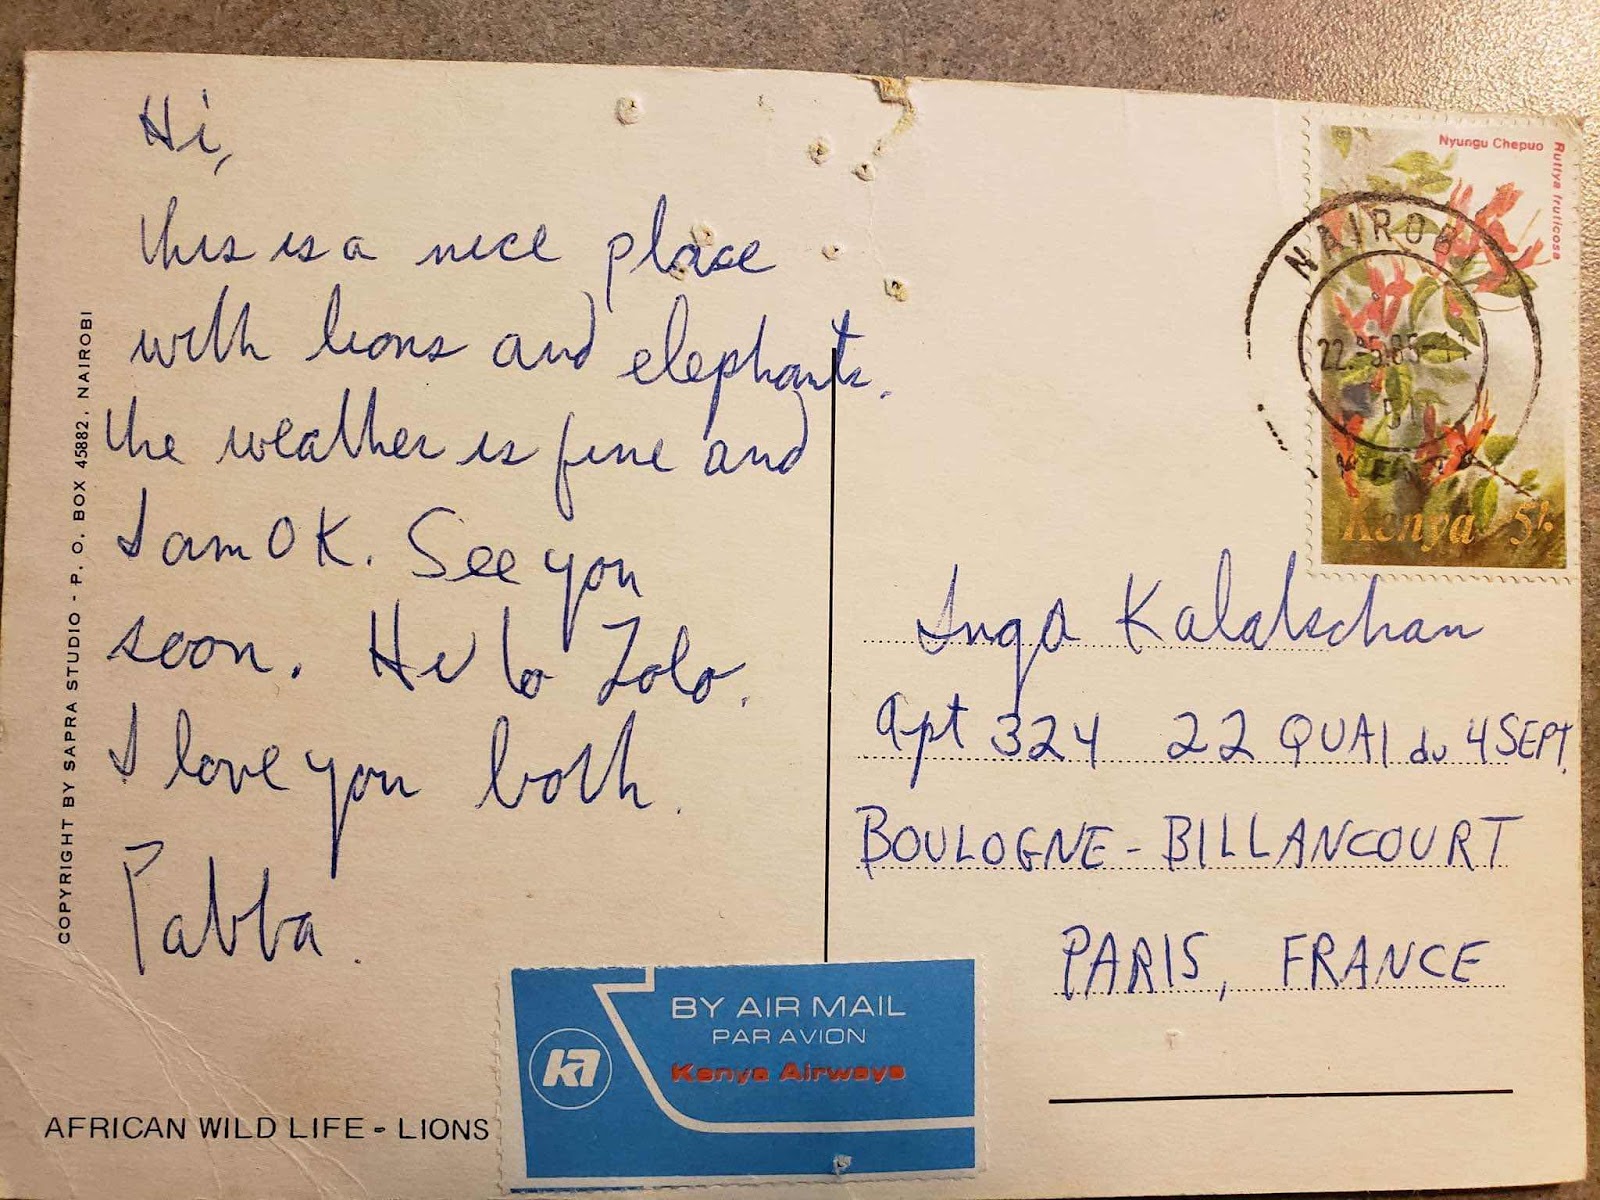 Hi,
this is a nice place
with lions and elephants.
the weather is fine and
I am OK. See you
soon. Hi to Lolo.
I love you both.
Pabba.
COPYRIGHT BY SAPRA STUDIO - P. O. BOX 45882, NAIROBI
AFRICAN WILD LIFE - LIONS
BY AIR MAIL
PAR AVION
Kenya Airways
KA
Nyungu Chepuo
Ruttya fruticosa
NAIROB
Kenya 5/-
Inga Kalatschan
Apt 324 22 QUAI du 4 SEPT.
BOULOGNE - BILLANCOURT
PARIS, FRANCE